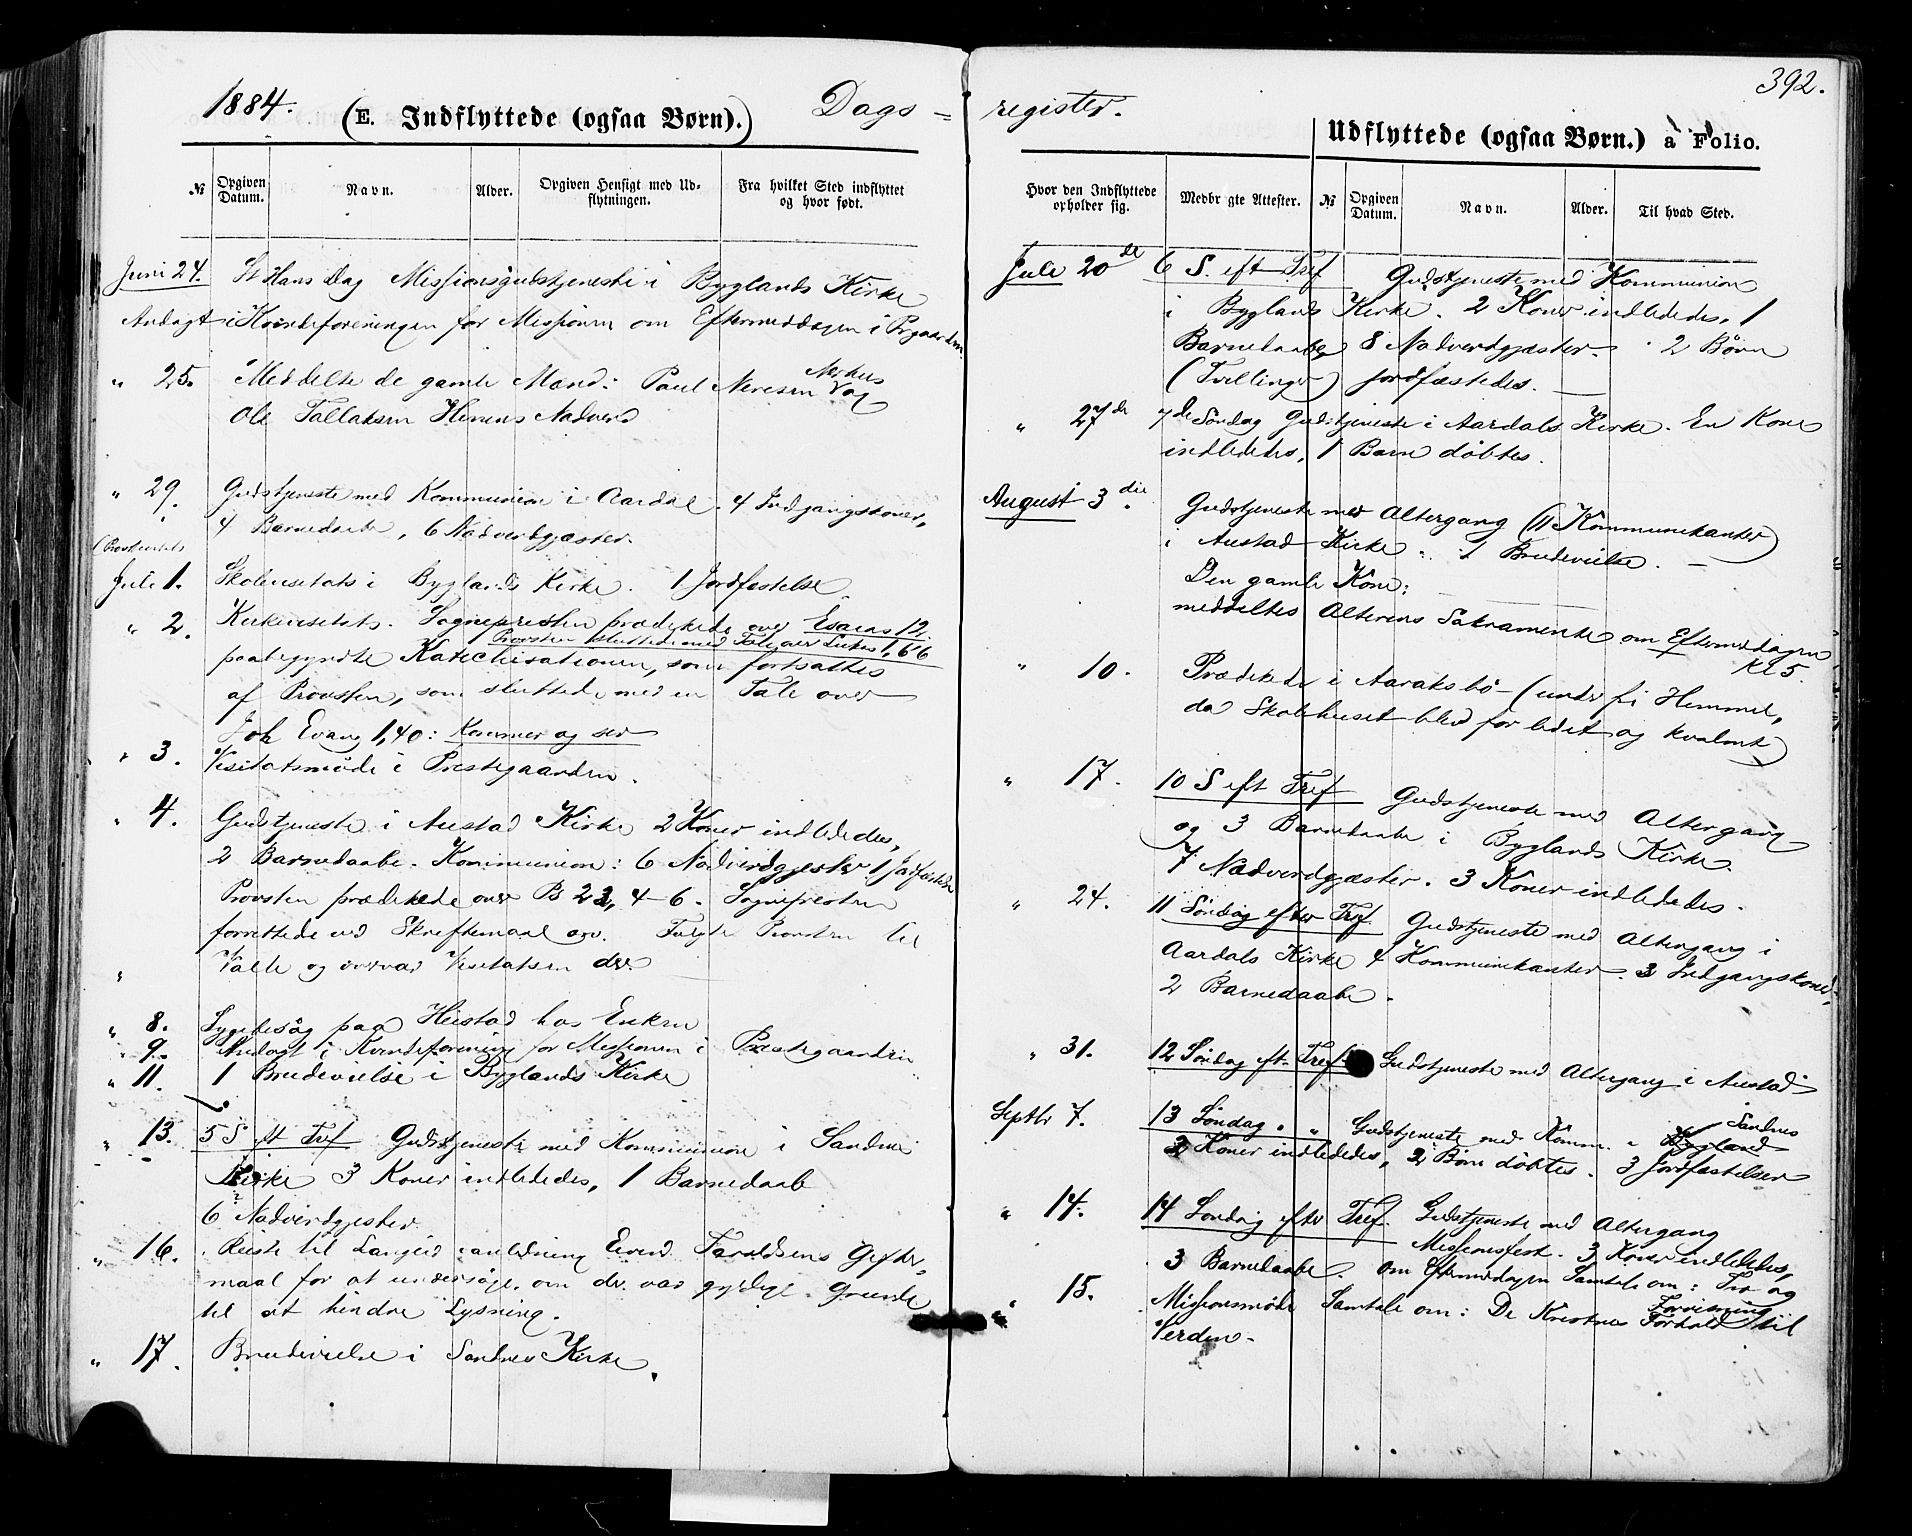 1884. (E. Indflyttede (ogsaa Børn).) Dags-
№ Opgiven Datum. Navn. Alder. Opgiven Hensigt med Udflytningen. Fra hvilket Sted indflyttet og hvor født.
Juni 24. St Hans Dag Missionsgudstjeneste i Byglands Kirke
Andagt i Kvindeforeningen for Missionen om Eftermiddagen i Prgaarden
" 25. Meddelte de gamle Mænd: Paul Neresen
Ole Tallaksen Nadverd
" 29. Gudstjeneste med Kommunion i Aardal. 4 Indgangskoner,
4 Barnedaabe, 6 Nadverdgjæster.
(Provstevisitats
Juli 1. Skolevisitats i Byglands Kirke. 1 Jordfæstelse.
" 2. Kirkevisitats. Sognepresten prædikede over Esaias 12.
Provsten sluttede med Tale over Lukas 1,66
paabegyndte Katechisationen, som fortsattes
af Provsten, som sluttede med en Tale over
Joh Evang 1,40: Kommer og ser
" 3. Visitatsmøde i Prestegaarden.
" 4. Gudstjeneste i Austad Kirke 2 Koner indledede,
2 Barnedaabe. Kommunion: 6 Nadverdgjester 1 Jordfæstede
Provsten prædikede over Ps 23, 4-6. Sognepresten
forrettede ved Skriftemaal osv. Fulgte Provsten til
" Valle og overvar Visitatsen der.
" 8. Sygebesøg paa Heistad hos Enken
" 9. Andagt i Kvindeforening for Missionen i Præstegaarden
" 11. 1 Brudevielse i Byglands Kirke
" 13. 5 S eft Tref Gudstjeneste med Kommunion i Sandnes
Kirke 3 Koner indledede, 1 Barnedaab
6 Nadverdgjester
" 16. Reiste til Langeid i anledning Eivind Taraldsens Gifter-
maal for at undersøge, om der var gyldige Grunde
til at hindre Lysning.
" 17. Brudevielse i Sandnes Kirke.
392.
register. Udflyttede (ogsaa Børn.) a Folio.
Hvor den Indflyttede opholder sig. Medbragte Attester. № Opgiven Datum. Navn. Alder. Til hvad Sted.
Juli 20de 6 S. eft Tref Gudstjeneste med Kommunion
i Byglands Kirke. 2 Koner indlededes, 1
Barnedaab 8 Nadverdgjæster. 2 Børn
(Tvillinger) jordfæstedes.
" 27de 7de Søndag Gudstjeneste i Aardals Kirke. En Kone
indlededes, 1 Barn døbtes.
August 3die. Gudstjeneste med Altergang (11 Kommunikanter)
i Austad Kirke. 1 Brudevielse.
Den gamle Kone:
meddeltes Alterens Sakramente om Eftermidagen
Kl 5.
" 10. Prædikede i Aaraksbø (under fri Himmel,
da Skolehuset blev for lidet og kvalmt)
" 17. 10 S eft Tref Gudstjeneste med Altergang
og 3 Barnedaabe i Byglands Kirke.
7 Nadverdgjæster. 3 Koner indlededes.
" 24. 11 Søndag efter Tref. Gudstjeneste med Altergang i
Aardals Kirke 4 Kommunikanter. 3 Indgangskoner,
2 Barnedaabe.
" 31. 12 Søndag eft. Tref Gudstjeneste med Altergang i Austad
Septbr 7. 13 Søndag " " Gudstjeneste med Komm. i Bygland Sandnes
2 Koner indlededes, 2 Børn døbtes. 3 Jordfæstelser
" 14. 14 Søndag efter Tref. Gudstjeneste med Altergang
Missionsfest. 3 Koner indlededes,
3 Barnedaabe. Om Eftermidagen Samtale om: Tro og
" 15. Missionsmøde Samtale om: De Kristnes Forhold til
Verden.